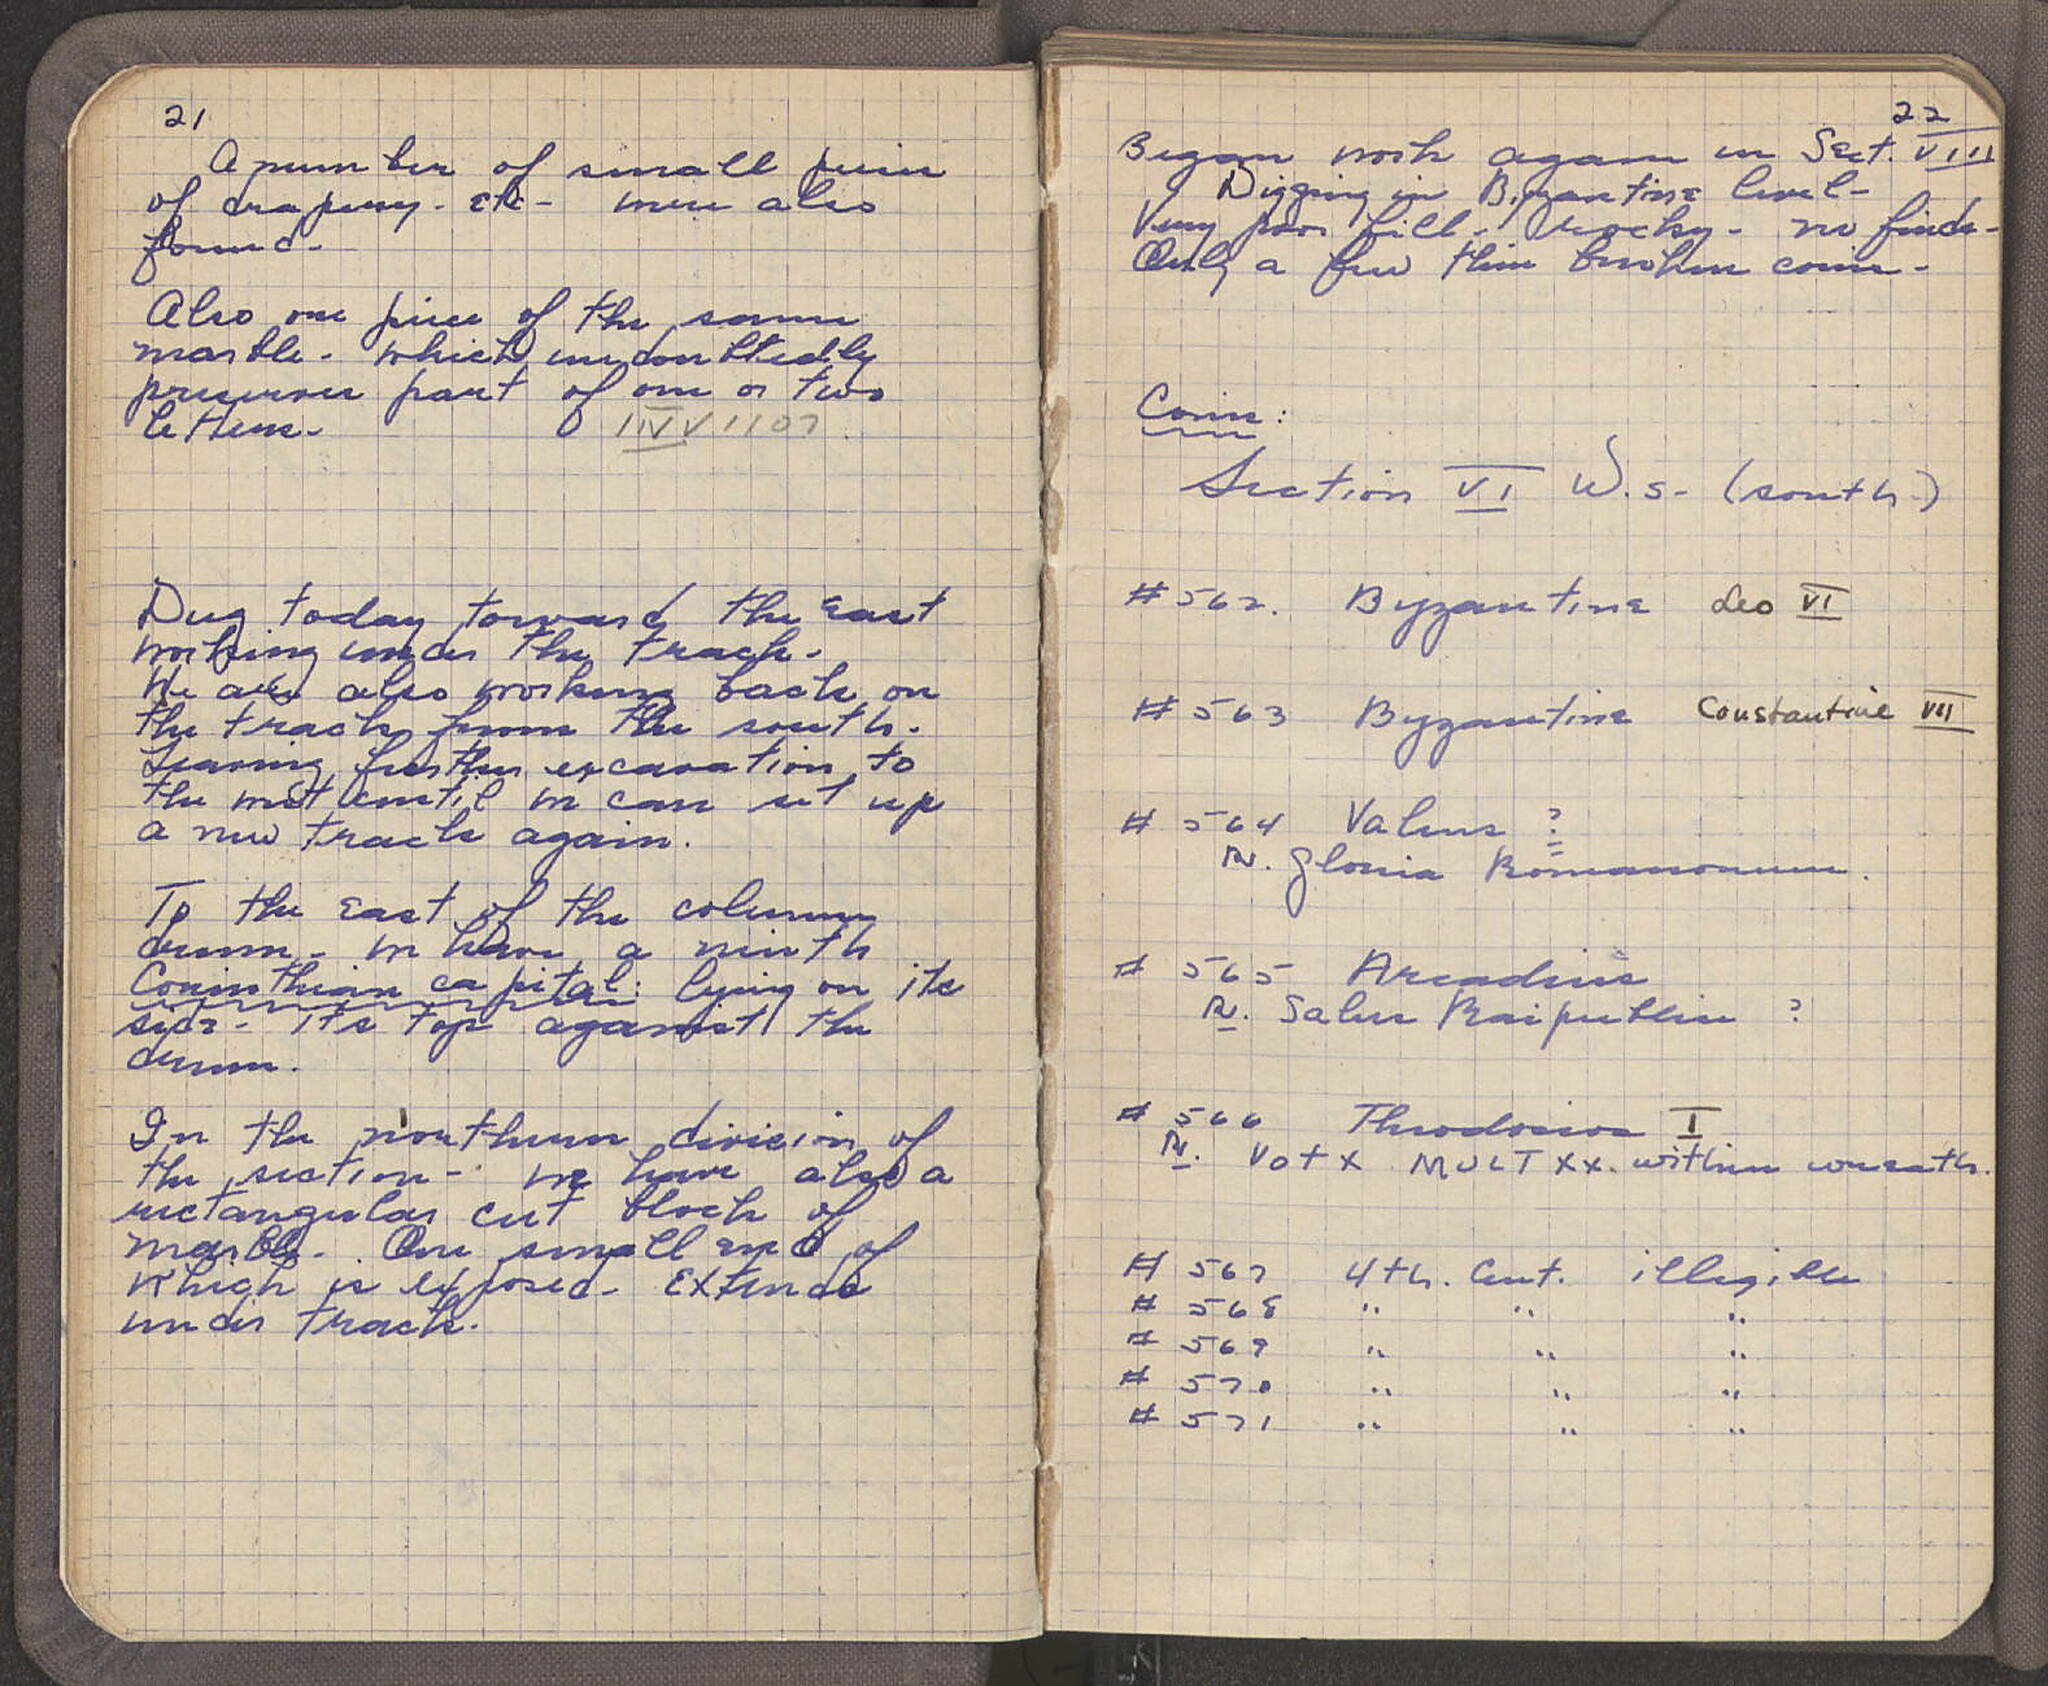 21
A number of small pieces
of drapery - etc - were also
found -
Also one piece of the same
marble - which undoubtedly
preserves part of one or two
letters -
Dug today toward the East
working under the track -
We are also working back on
the track from the south -
Leaving further excavation to
the west until we can set up
a new track again.
To the East of the column
drum - we have a ninth
Corinthian capital: lying on its
side - its top against the
drum.
In the northern division of
the section - we have also a
rectangular cut block of
marble - One small end of
which is exposed - Extends
under track.
22
Began work again in Sect. VIII
Digging in Byzantine level -
Very poor fill - rocky - no finds -
Only a few thin broken coins -
Coins:
Section VI W.S. (south)
# 562. Byzantine Leo VI
# 563 Byzantine Constantine VII
# 564 Valens ?
Rv. Gloria Romanorum.
# 565 Arcadius
Rv. Salus Reipublice ?
# 566 Theodosius I
Rv. VOT X MULT XX. within wreath.
# 567 4th. Cent. illegible
# 568 " " "
# 569 " " "
# 570 " " "
# 571 " " "